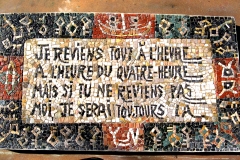 JE REVIENS TOUS À L'HEURE
A L'HEURE DU QUATRE-HEURE
MAIS SI TU NE REVIENS PAS
MOI JE SERAI TOUJOURS LÀ